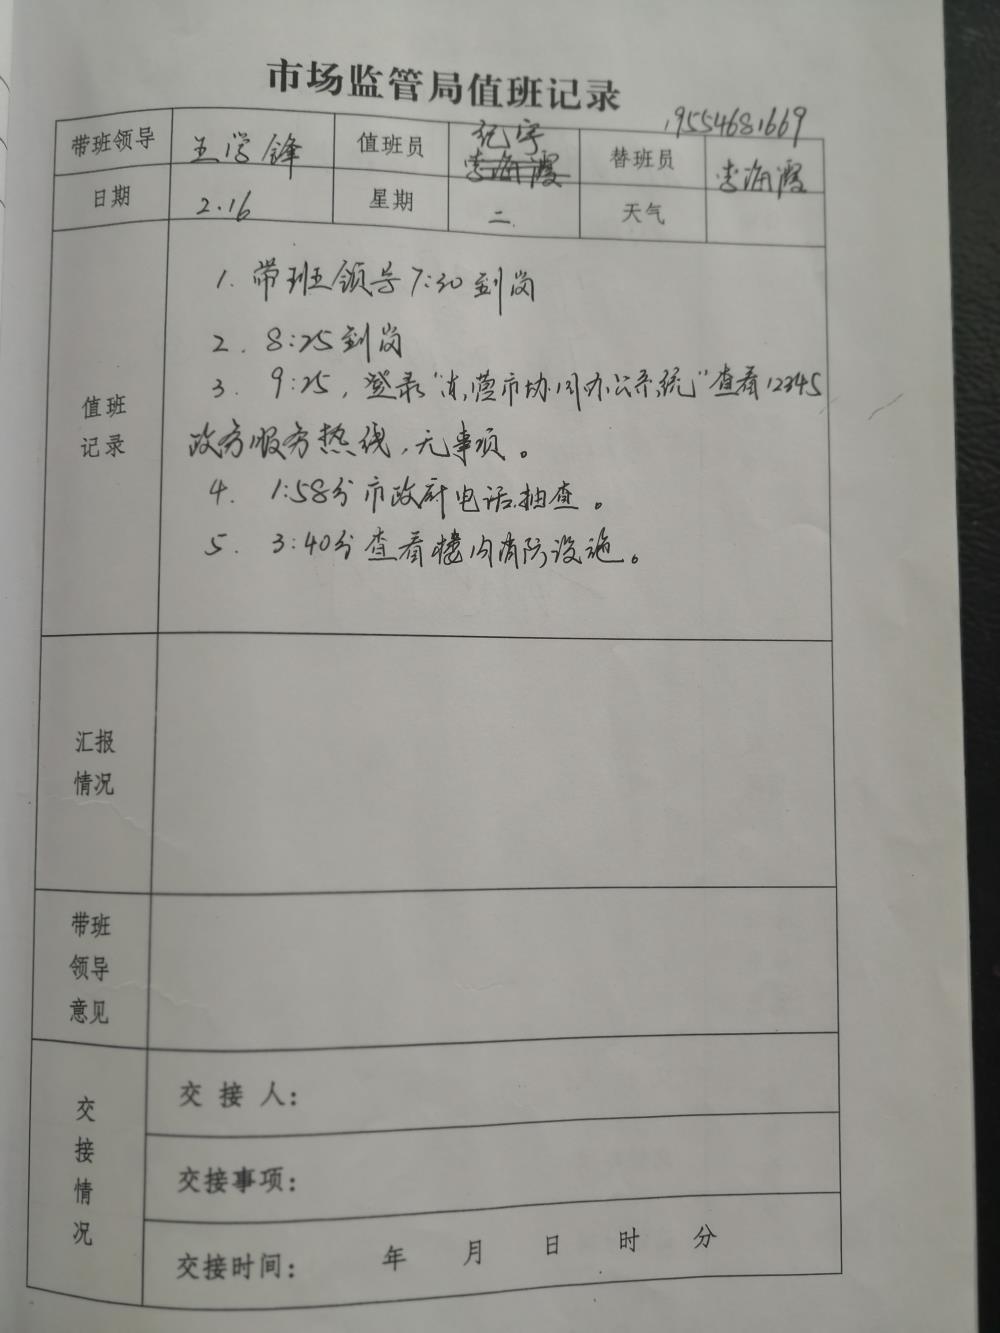 市场监管局值班记录
19554681669
带班领导 王学锋 值班员 纪宇 李海霞 替班员 李海霞
日期 2.16 星期 二 天气
值班记录
1. 带班领导7:30到岗
2. 8:25到岗
3. 9:25，登录“东营市协同办公系统”查看12345
政务服务热线，无事项。
4. 1:58分市政府电话抽查。
5. 3:40分查看楼内消防设施。
汇报
情况
带班
领导
意见
交
接
情
况
交接人：
交接事项：
交接时间： 年 月 日 时 分